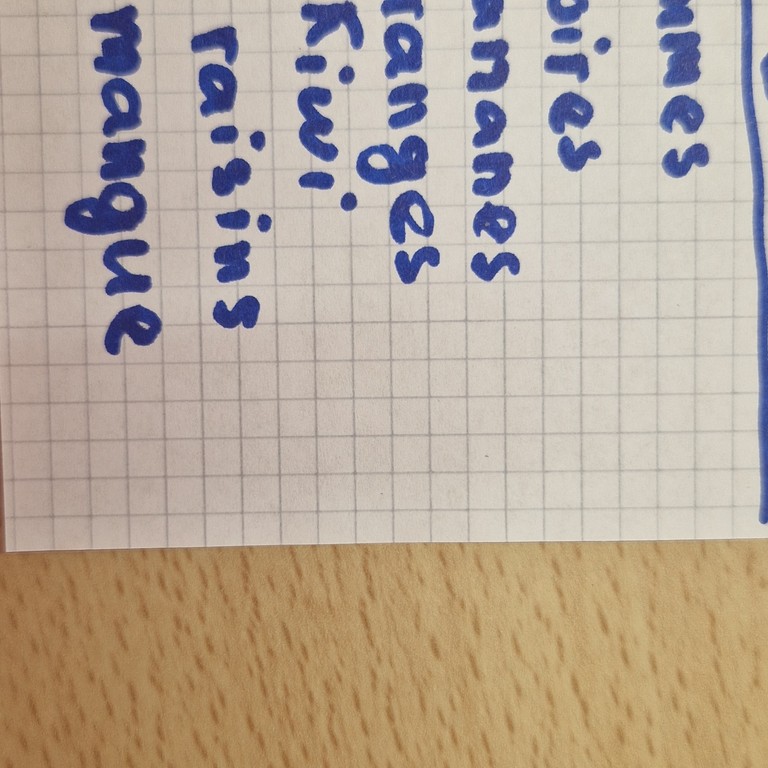 mmes
oires
ananes
ranges
Kiwi
raisins
mangue